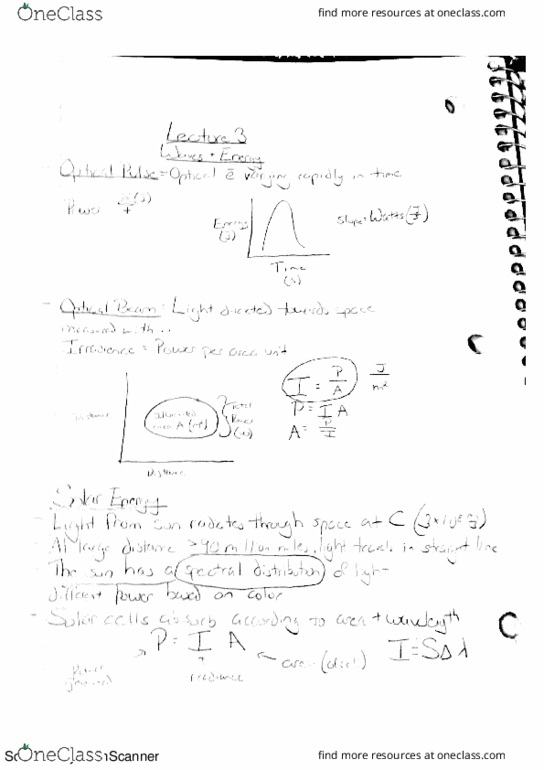 OneClass
find more resources at oneclass.com
Lecture 3
Waves + Energy
Optical Pulse = Optical e varying rapidly in time
Energy
(J)
Slope = Watts (J/s)
Time
(s)
- Optical Beam: Light directed towards space
measured with..
Irradience = Power per area unit
I = P/A
J/m²
P = I A
A = P/I
Distance
Total
Power
Distance
Solar Energy
- Light from sun radiates through space at C
- At large distance >90 million miles, light travels in straight line
- The sun has a spectral distribution of light
different power based on color
- Solar cells absorb according to area + wavelength
P = I A
I = SΔλ
Power
irradiance
area
OneClass
Scanner
find more resources at oneclass.com